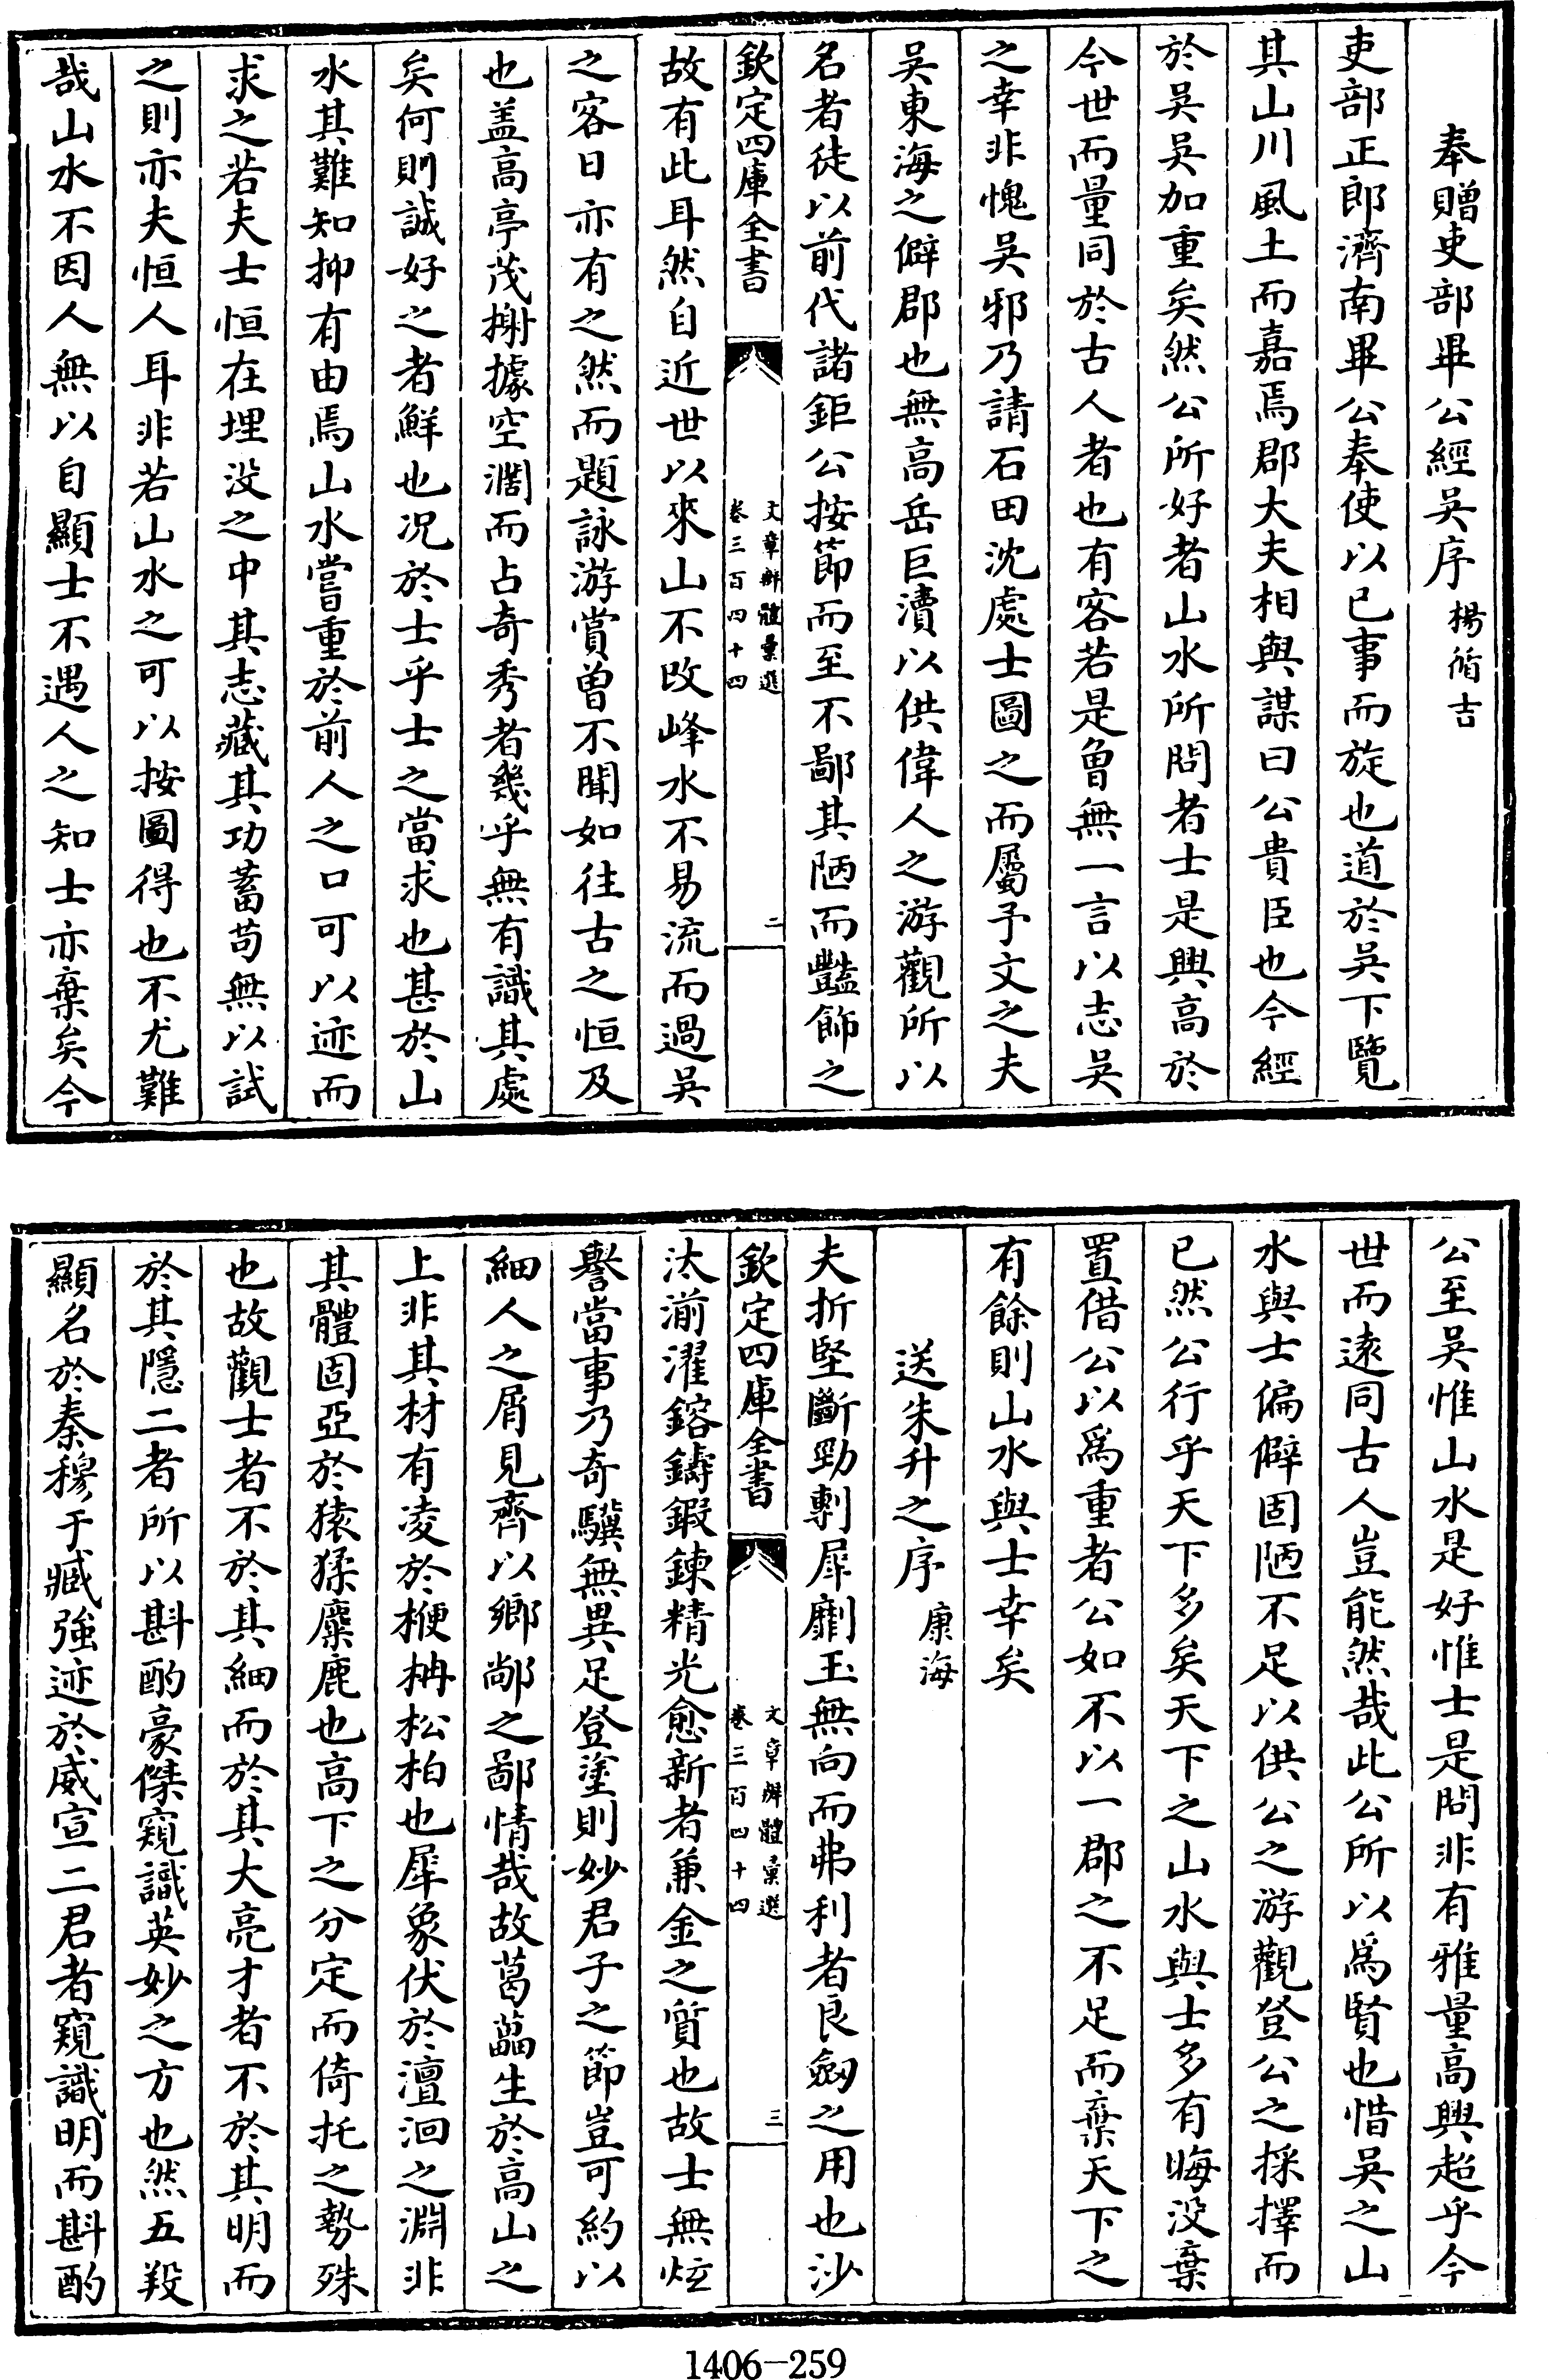 奉贈吏部畢公經吳序 楊循吉
吏部正郎濟南畢公奉使以已事而旋也道於吳下覽
其山川風土而嘉焉郡大夫相與謀曰公貴臣也今經
於吳吳加重矣然公所好者山水所問者士是興高於
今世而量同於古人者也有客若是曾無一言以志吳
之幸非愧吳邪乃請石田沈處士圖之而屬予文之夫
吳東海之僻郡也無高岳巨瀆以供偉人之游觀所以
名者徒以前代諸鉅公按節而至不鄙其陋而豔飾之
欽定四庫全書
文章辨體彙選
卷三百四十四
二
故有此耳然自近世以來山不改峰水不易流而過吳
之客日亦有之然而題詠游賞曽不聞如往古之恒及
也盖高亭茂榭據空濶而占奇秀者幾乎無有識其處
矣何則誠好之者鮮也况於士乎士之當求也甚於山
水其難知抑有由焉山水嘗重於前人之口可以迹而
求之若夫士恒在埋没之中其志藏其功蓄苟無以試
之則亦夫恒人耳非若山水之可以按圖得也不尤難
哉山水不因人無以自顯士不遇人之知士亦棄矣今
公至吳惟山水是好惟士是問非有雅量高興超乎今
世而遠同古人豈能然哉此公所以爲賢也惜吳之山
水與士偏僻固陋不足以供公之游觀登公之採擇而
已然公行乎天下多矣天下之山水與士多有晦没棄
置借公以爲重者公如不以一郡之不足而棄天下之
有餘則山水與士幸矣
送朱升之序 康海
夫折堅斷勁剸犀劘玉無向而弗利者良劔之用也沙
欽定四庫全書
文章辨體彙選
卷三百四十四
三
汰湔濯鎔鑄鍜鍊精光愈新者兼金之質也故士無炫
譽當事乃奇驥無異足登塗則妙君子之節豈可約以
細人之屑見齊以鄉鄙之鄙情哉故葛藟生於高山之
上非其材有凌於楩柟松柏也犀象伏於澶洄之淵非
其體固亞於猿猱麋鹿也高下之分定而倚托之勢殊
也故觀士者不於其細而於其大亮才者不於其明而
於其隱二者所以斟酌豪傑窺識英妙之方也然五羖
顯名於秦穆于臧強迹於威宣二君者窺識明而斟酌
1406-259